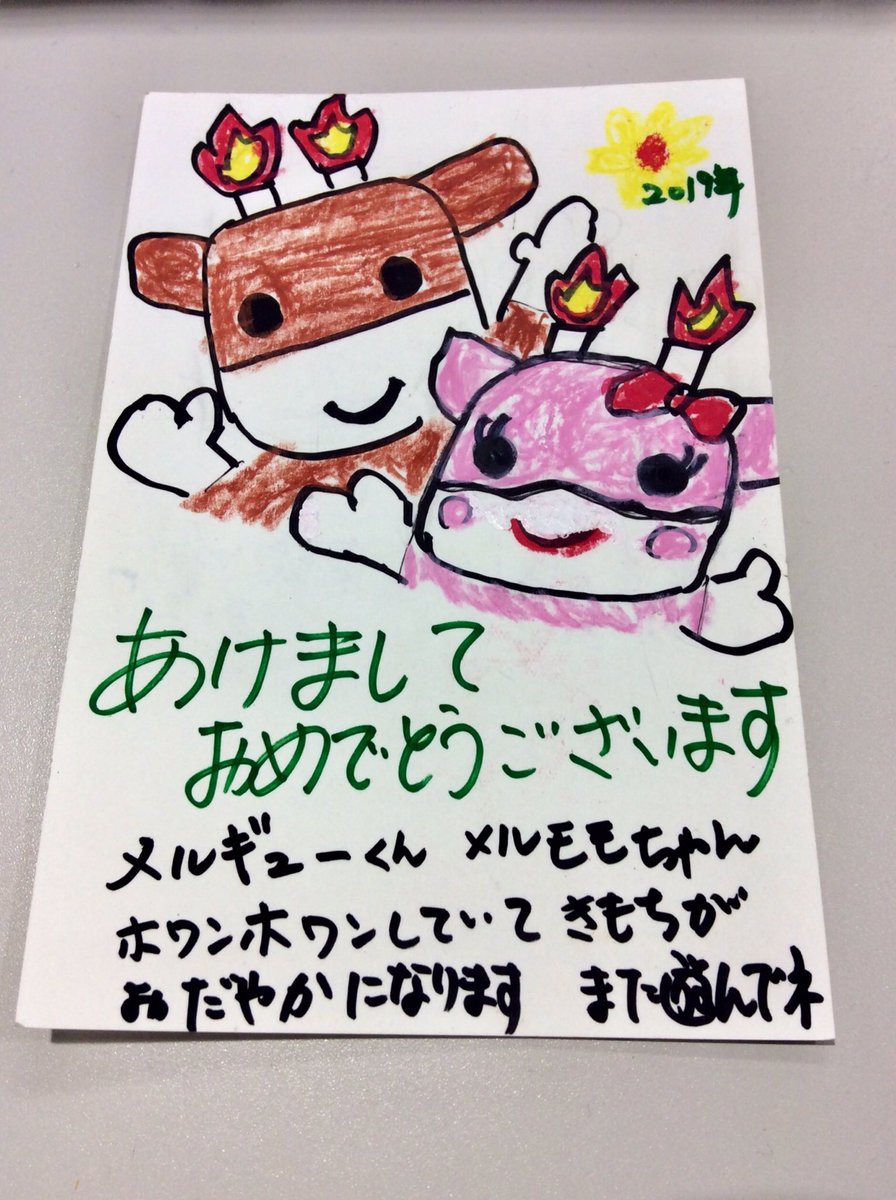 2019年
あけまして
おめでとうございます
メルギューくん メルモモちゃん
ホワンホワンしていて きもちが
おだやかになります また遊んでネ